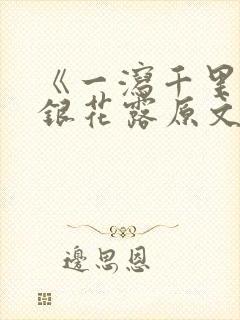 《一泻千里
银花露原文
边思恩